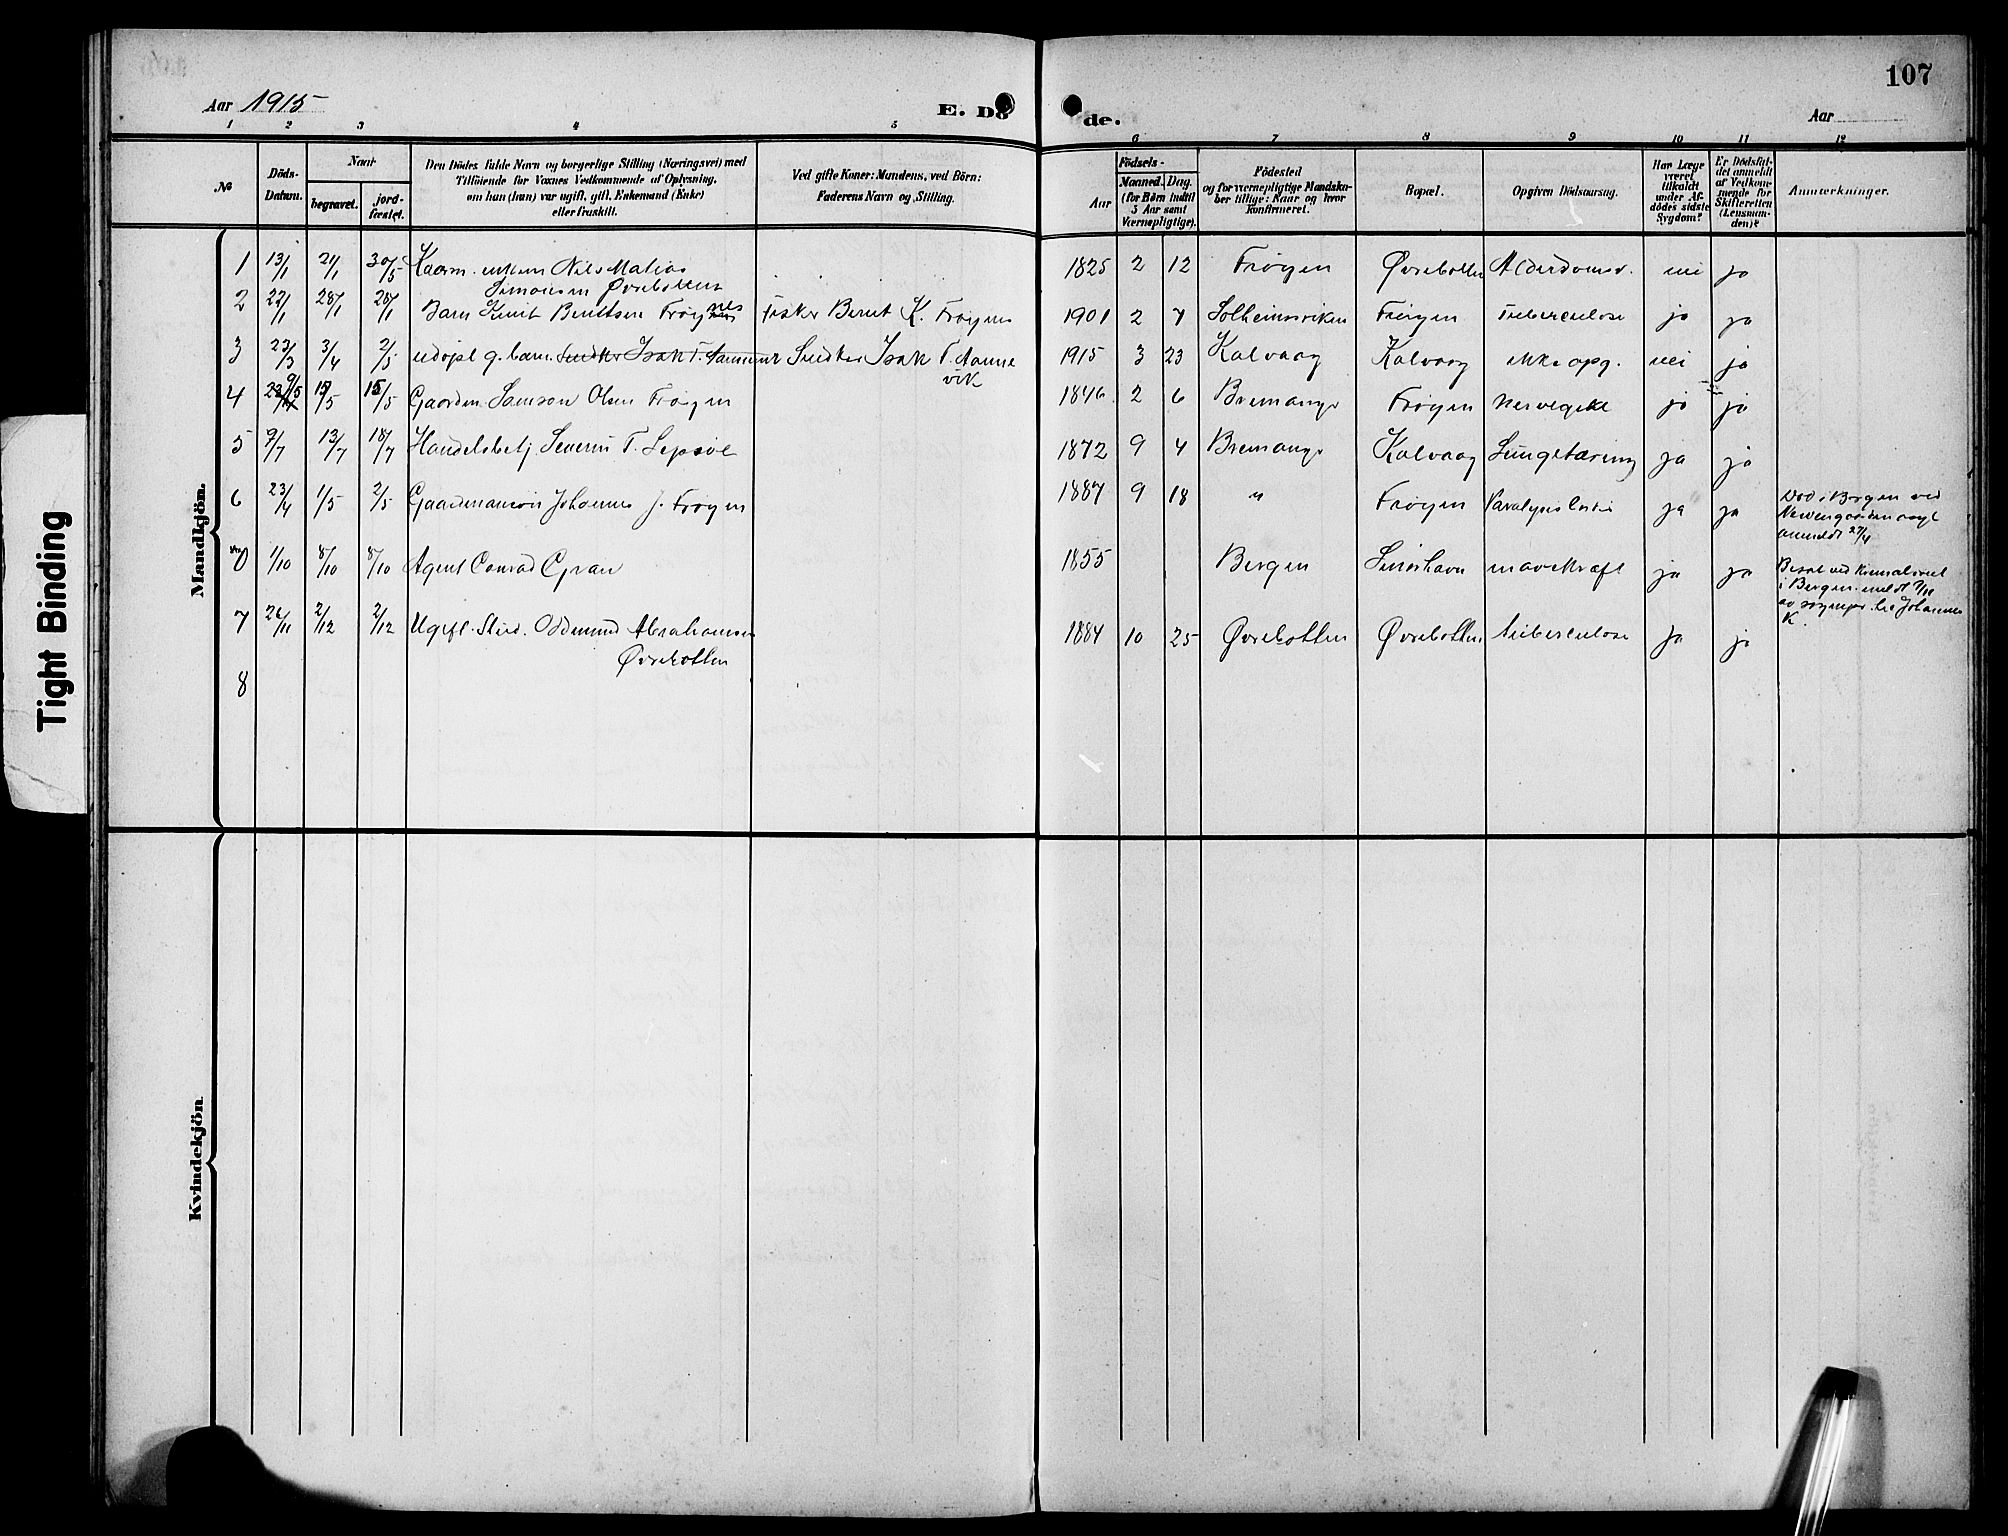 107
Aar 1915
E. Dö
de.
Aar
1 2 3 4 5
6 7 8 9 10 11 12
№
Döds-
Datum.
Naar
begravet.
jord-
fæstet.
Den Dödes fulde Navn og borgerlige Stilling (Næringsvei) med
Tilföiende for Voxnes Vedkommende af Oplysning,
om han (hun) var ugift, gift, Enkemand (Enke)
eller fraskilt.
Ved gifte Koner: Mandens, ved Börn:
Faderens Navn og Stilling.
Födsels-
Aar
Maaned. Dag.
(for Börn indtil
5 Aar samt
Værnepligtige).
Födested
og for værnepligtige Mandska-
ber tillige: Naar og hvor
konfirmeret.
Bopæl.
Opgiven Dödsaarsag.
Har Læge
været
tilkaldt
under Af-
dödes sidste
Sygdom?
Er Dödsfal-
det anmeldt
af Vedkom-
mende for
Skifteretten
(Lensman-
den)?
Anmærkninger.
Mandkjön.
1 13/1 21/1 30/5 Kaarm. enkem Nils Matias 1825 2 12 Frøyen Øvrebotten Alderdomsv. nei ja
Simonsen Øvrebotten
2 22/1 28/1 28/1 Barn Knut Berntsen Frøynes Fisker Bernt K. Frøynes 1901 2 7 Solheimsviken Frøyen Tuberculose ja ja
3 23/3 3/4 2/5 udøpt g. barn Snedker Isak T. Snedker Isak T. Hamne 1915 3 23 Kalvaag Kalvaag ikke opg. nei ja
vik
4 9/5 15/5 15/5 Gaardm. Samson Olsen Frøyen 1846 2 6 Bremanger Frøyen ja ja
5 9/7 13/7 18/7 Handelsbetj. Severin T. Sepsøe 1872 9 4 Bremanger Kalvaag Lungetæring ja ja
6 23/4 1/5 2/5 Gaardmansøn Johannes J. Frøyen 1887 9 18 " Frøyen Paralysis ja ja Død i Bergen ved
anmeldt 27/4
0 1/10 8/10 8/10 Agent Conrad Gran 1855 Bergen Smørhavn mavekræft ja ja
i Bergen meldt
K.
7 26/11 2/12 2/12 Ugift Stud. Oddmund Abrahamsen 1884 10 25 Øvrebotten Øvrebotten tuberculose ja ja
Øvrebotten
8
Kvindekjön
Tight Binding